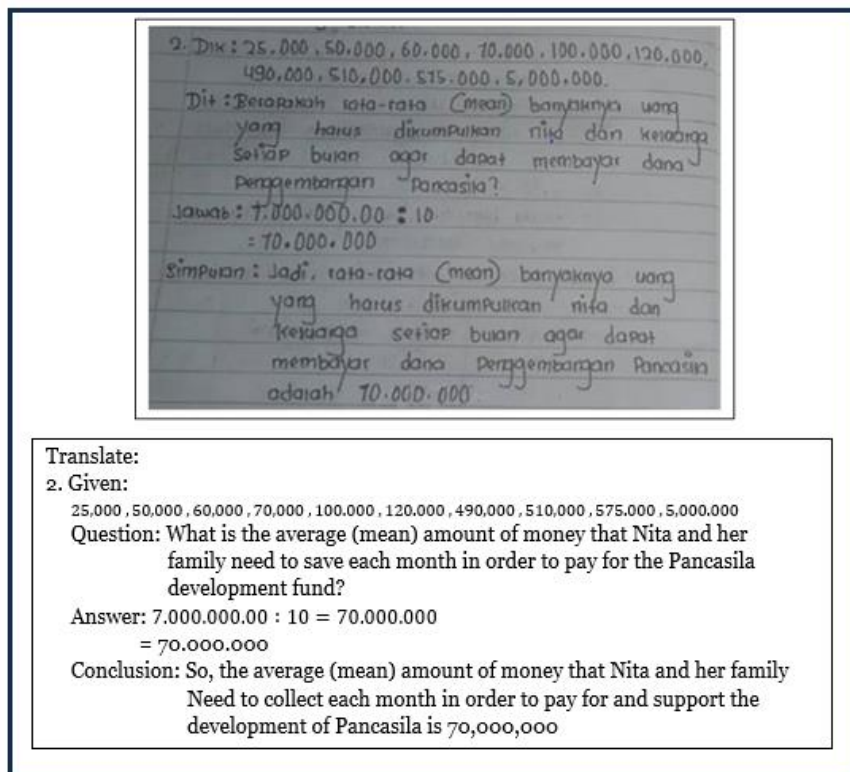 2. Dik : 25.000 , 50.000 , 60.000 , 70.000 . 100.000 , 120.000,
490,000 , 510,000 . 575.000 . 5,000.000.
Dit : Berapakah rata-rata (mean) banyaknya uang
yang harus dikumpulkan nita dan keluarga
Setiap bulan agar dapat membayar dana
Penggembangan Pancasila?
Jawab : 7.000.000.00 : 10
= 70.000.000
Simpulan : Jadi, rata-rata (mean) banyaknya uang
yang harus dikumpulkan nita dan
keluarga setiap bulan agar dapat
membayar dana Penggembangan Pancasila
adalah 70.000.000
Translate:
2. Given:
25,000 , 50,000 , 60,000 , 70,000 , 100.000 , 120.000 , 490,000 , 510,000 , 575.000 , 5,000.000
Question: What is the average (mean) amount of money that Nita and her
family need to save each month in order to pay for the Pancasila
development fund?
Answer: 7.000.000.00 : 10 = 70.000.000
= 70.000.000
Conclusion: So, the average (mean) amount of money that Nita and her family
Need to collect each month in order to pay for and support the
development of Pancasila is 70,000,000